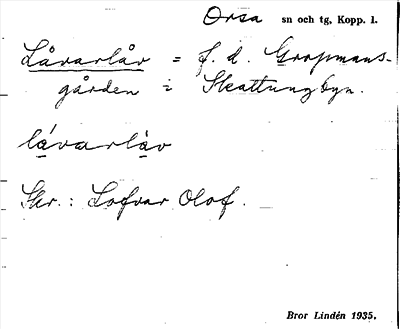 Orsa sn och tg, Kopp. l.
Låvarlåv = f. d. Gropmans-
gården i Skattungbyn.
låvarlåv
Skr.: Lofvar Olof.
Bror Lindén 1935.